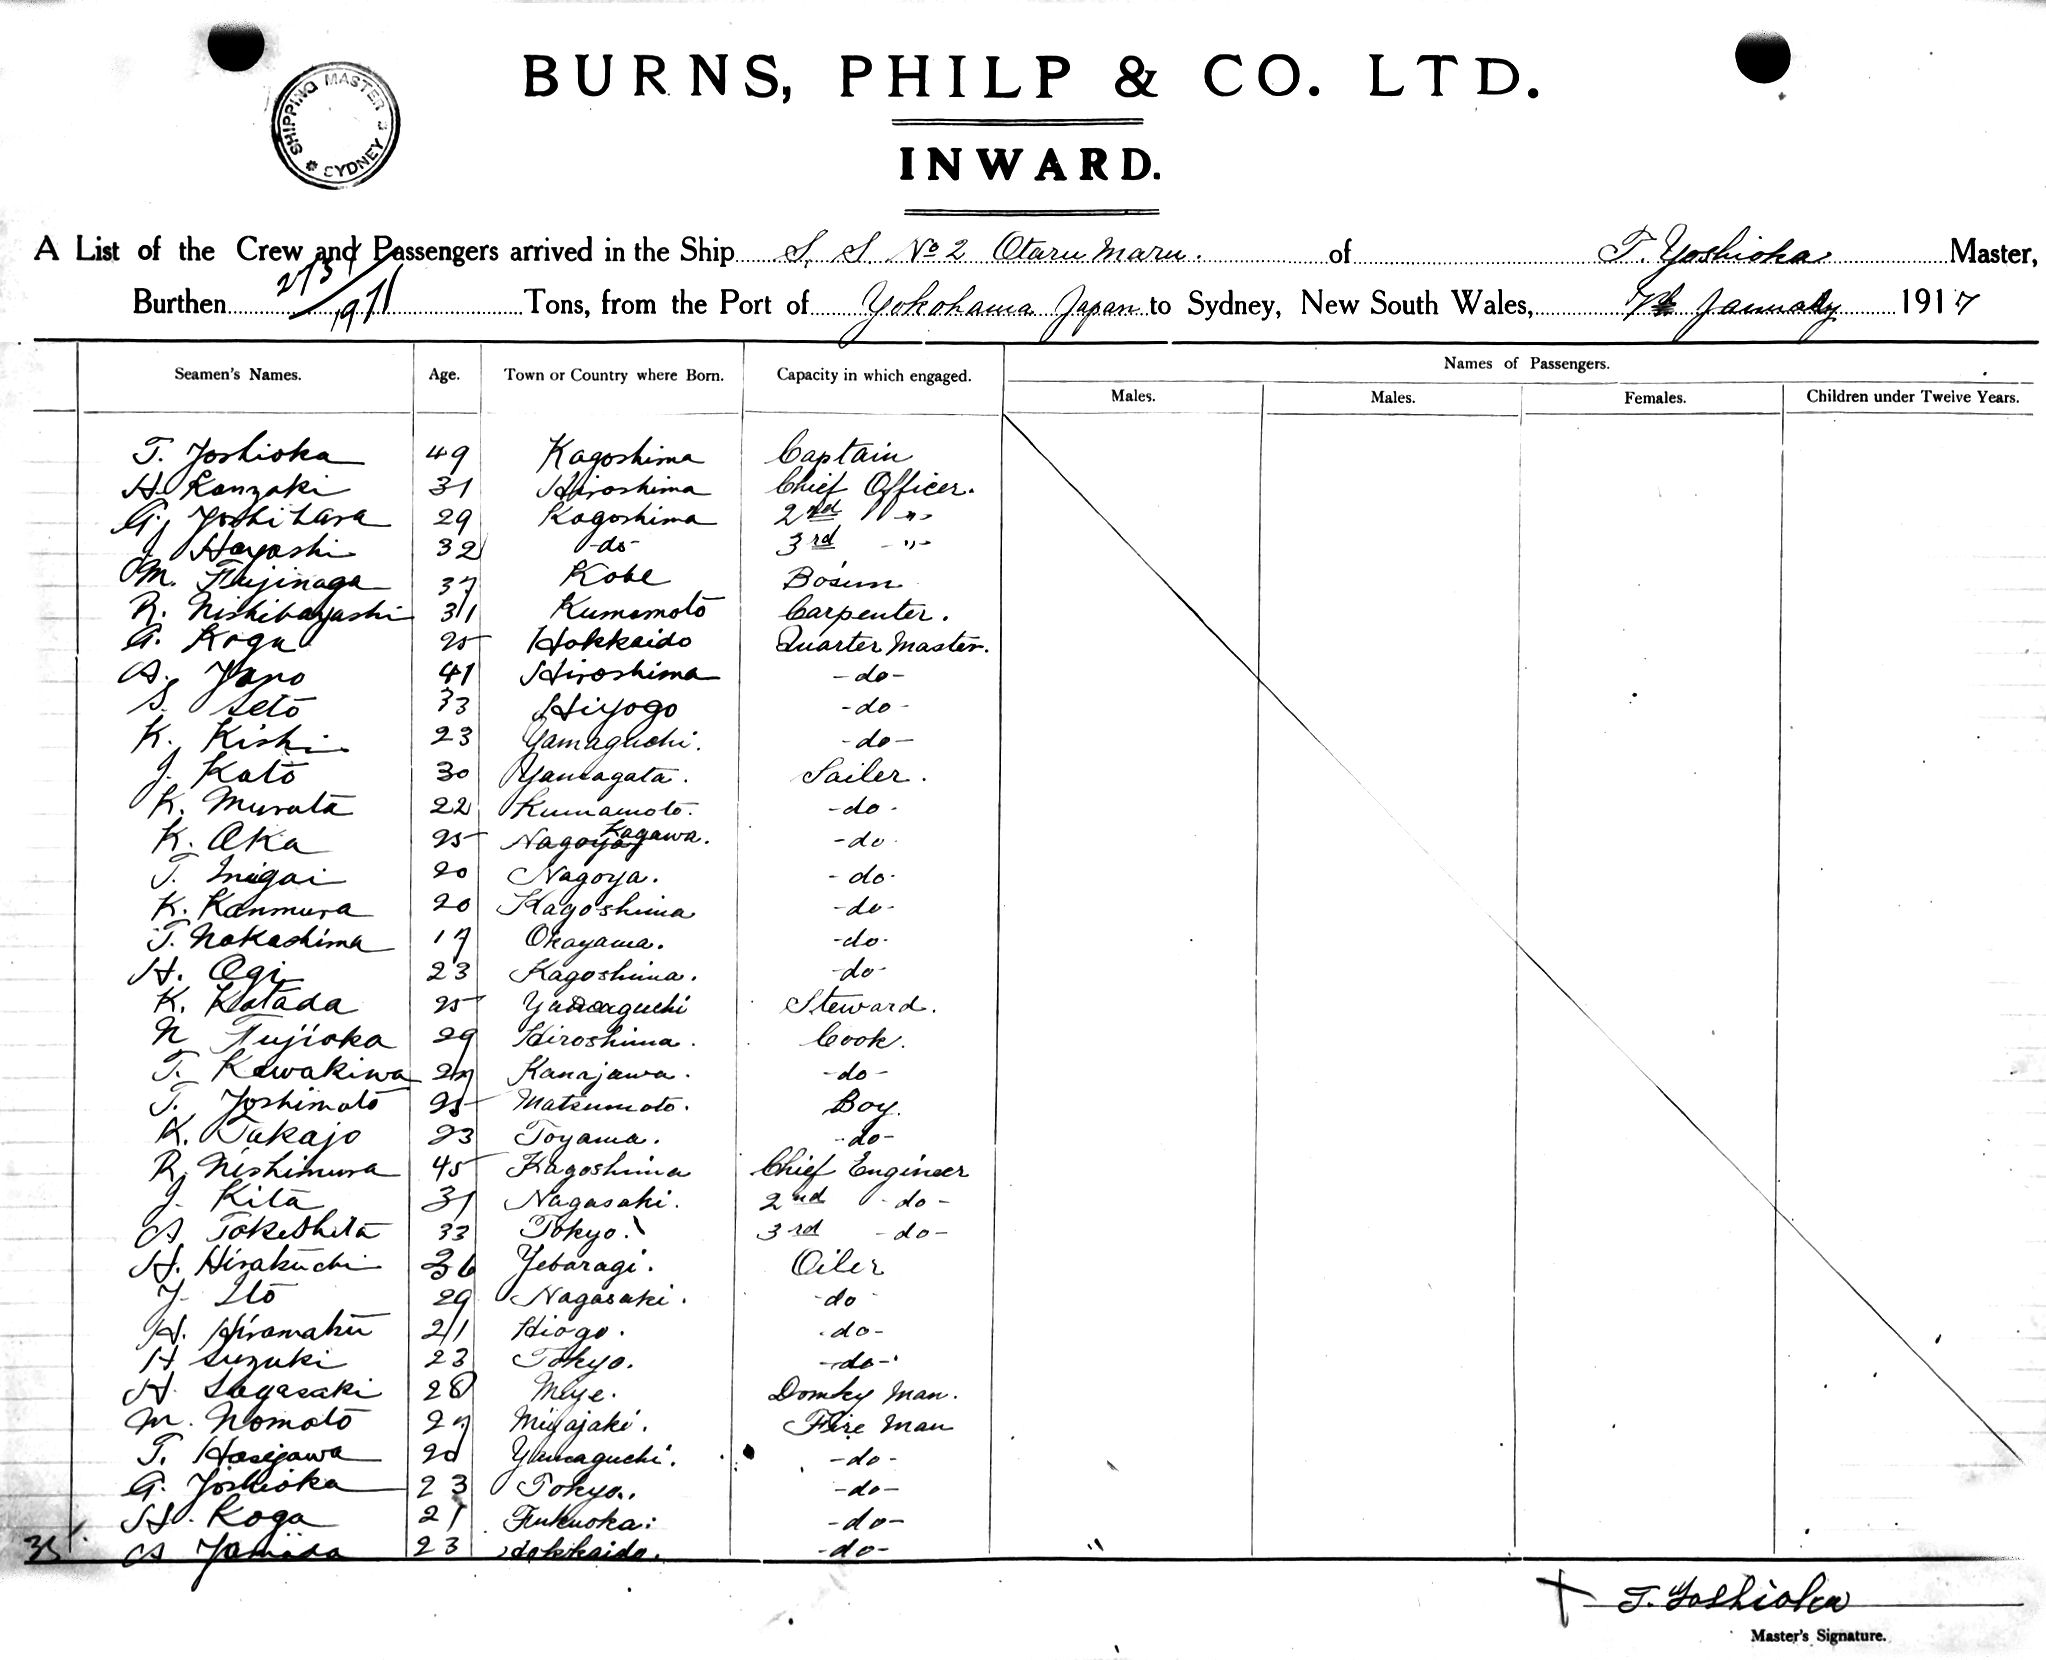 BURNS, PHILP & CO. LTD.
SHIPPING MASTER SYDNEY
INWARD.
A List of the Crew and Passengers arrived in the Ship S. S. No 2 Otaru Maru. of T. Yoshioka Master,
Burthen Tons, from the Port of Yokohama Japan to Sydney, New South Wales, January 1917
Seamen's Names. Age. Town or Country where Born. Capacity in which engaged. Names of Passengers.
Males. Males. Females. Children under Twelve Years.
T. Yoshioka 49 Kagoshima Captain
H. Kanzaki 31 Hiroshima Chief Officer.
G. Yoshihara 29 Kagoshima 2nd "
J. Hayashi 32 -do- 3rd -"-
M. Fujinaga 37 Kobe Bosun
R. Nishibayashi 31 Kumamoto Carpenter.
G. Koga 25 Hokkaido Quarter Master.
A. Yano 41 Hiroshima -do-
S. Seto 33 Hiyogo -do-
K. Kishi 23 Yamaguchi. -do-
J. Kato 30 Yamagata. Sailer.
K. Murata 22 Kumamoto. -do-
K. Oka 25 Nagoya Kagawa. -do-
T. 20 Nagoya. -do-
K. Kanmura 20 Kagoshima -do-
T. Nakashima 17 Okayama. -do-
H. Ogi 23 Kagoshima. -do-
K. Katada 25 Yamaguchi Steward.
N Fujioka 29 Hiroshima. Cook.
T. Kawakiwa 27 Kanajawa. -do-
T. Yoshimoto 25 Matsumoto. Boy.
K. Takajo 23 Toyama. -do-
R. Nishimura 45 Kagoshima Chief Engineer
J. Kita 31 Nagasaki. 2nd -do-
A Takeshita 33 Tokyo. 3rd -do-
H. Hirakuchi 36 Yebaragi. Oiler
Y. Ito 29 Nagasaki. -do-
H. Hiramatu 21 Hiogo. -do-
H Suzuki 23 Tokyo. -do-
H. Sagasaki 28 Miye. Domky Man.
M. Nomoto 27 Miyajaki. Fire Man
T. Hasejawa 20 Yamaguchi. -do-
G. Yoshioka 23 Tokyo. -do-
H. Koga 21 Fukuoka. -do-
35 A Yamada 23 Hokkaido. -do-
T. Yoshioka
Master's Signature.